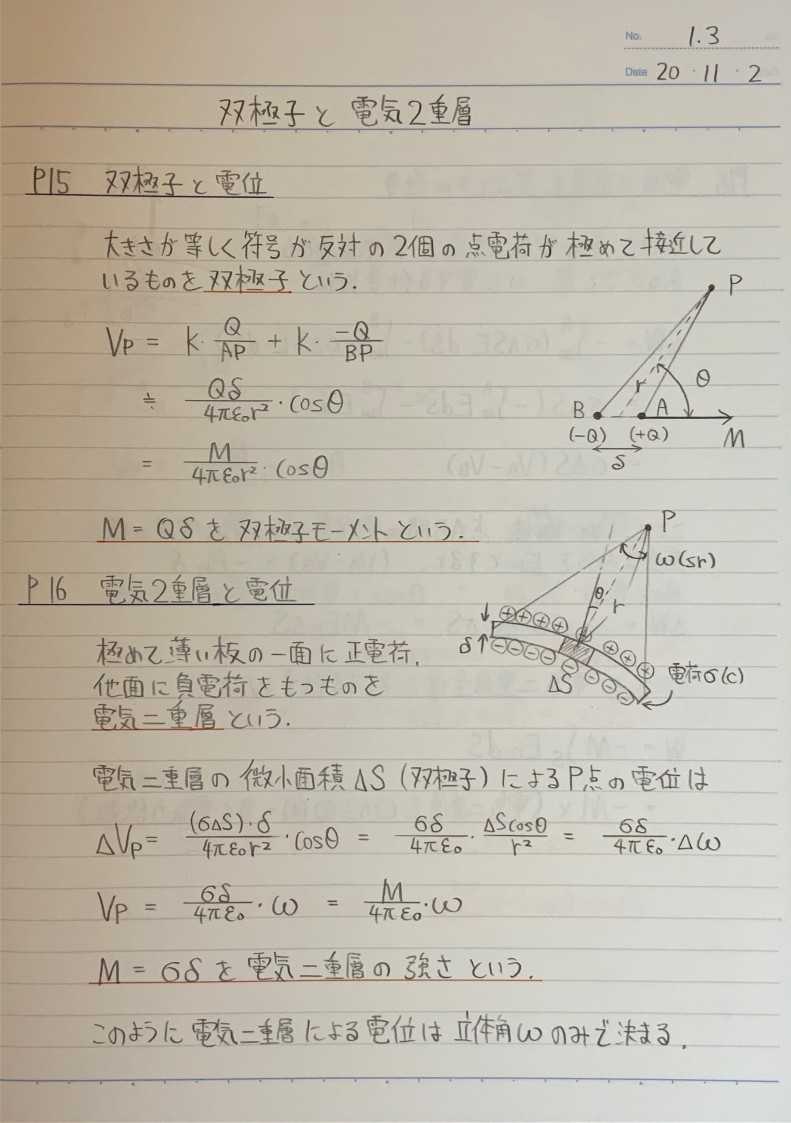 No. 1.3
Date 20・11・2
双極子と電気2重層
P15 双極子と電位
大きさが等しく符号が反対の2個の点電荷が極めて接近して
いるものを双極子という.
VP = k・Q/AP + k・-Q/BP
≒ Qδ/4πε₀r²・cosθ
= M/4πε₀r²・cosθ
P
r
θ
B A
(-Q) (+Q) M
δ
M = Qδを双極子モーメントという.
P
ω(sr)
θ
r
P16 電気2重層と電位
δ
ΔS
電荷σ(c)
極めて薄い板の一面に正電荷,
他面に負電荷をもつものを
電気二重層という.
電気二重層の微小面積ΔS(双極子)によるP点の電位は
ΔVP = (σΔS)・δ/4πε₀r²・cosθ = σδ/4πε₀・ΔScosθ/r² = σδ/4πε₀・Δω
VP = σδ/4πε₀・ω = M/4πε₀・ω
M = σδを電気二重層の強さという.
このように電気二重層による電位は立体角ωのみで決まる.